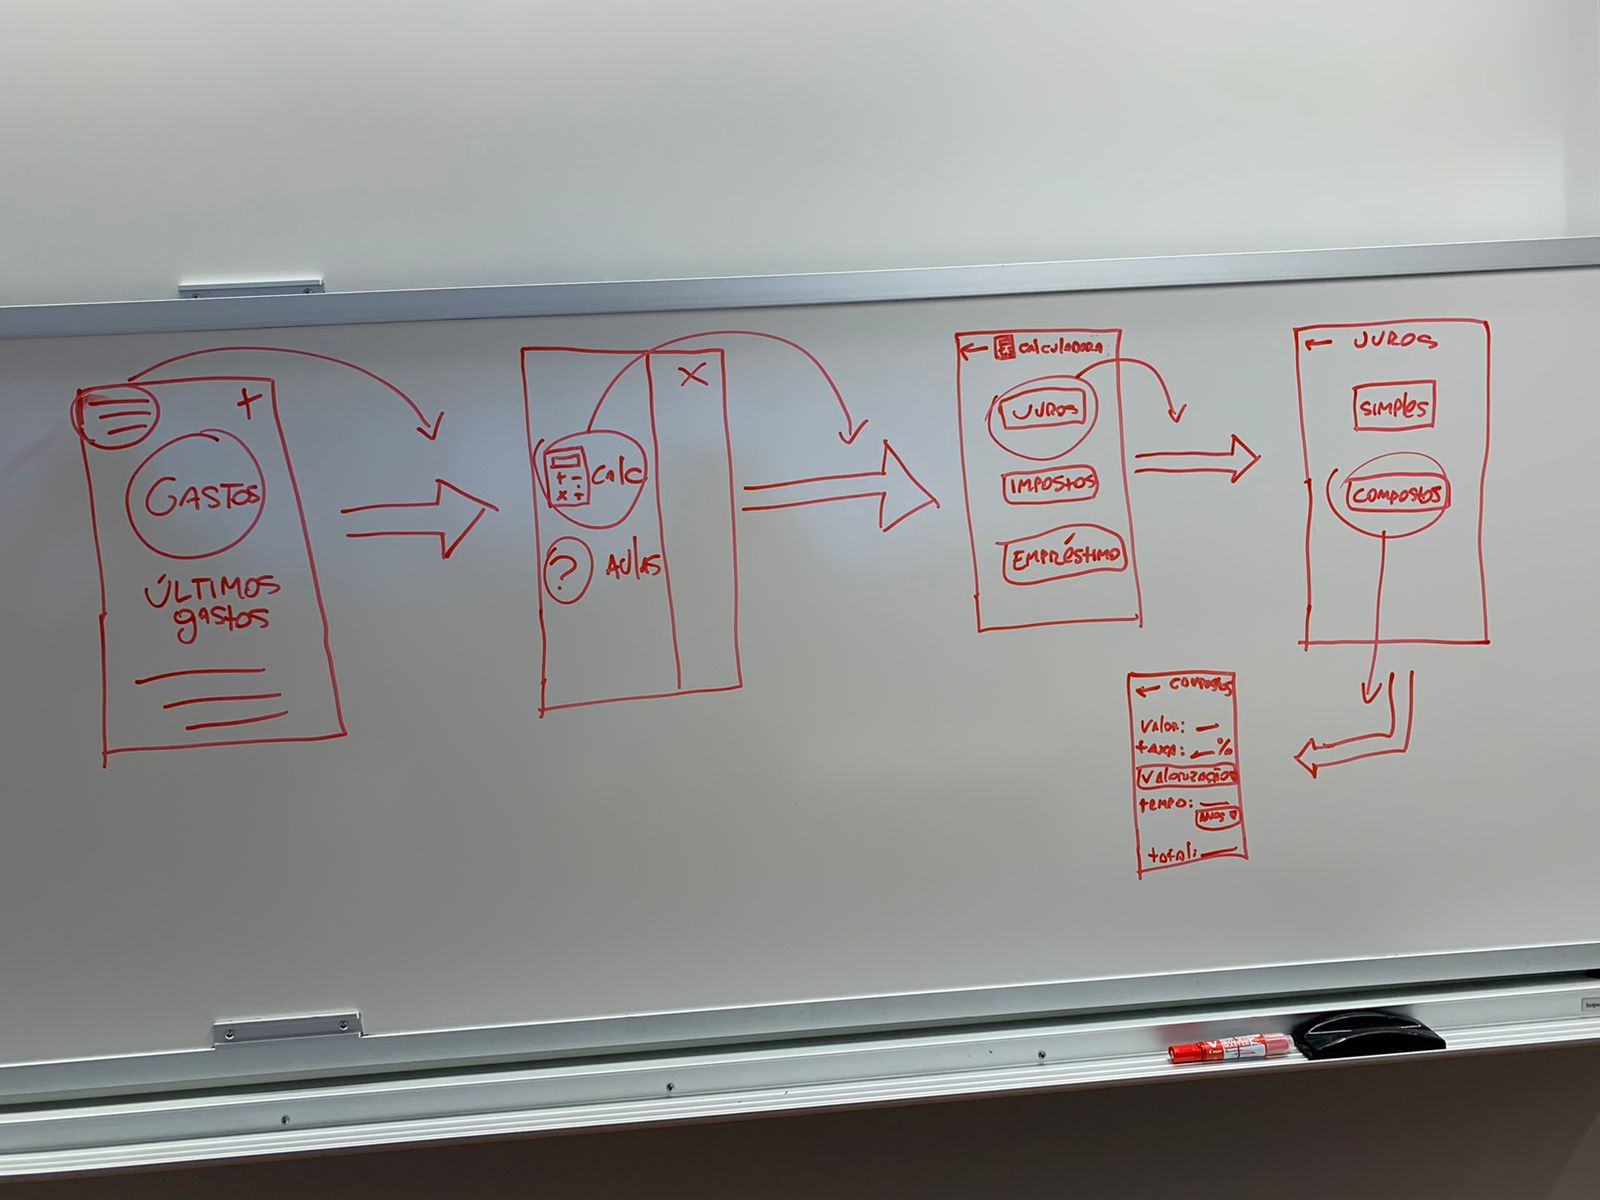 +
GASTOS
ÚLTIMOS
gastos
X
+ -
x ÷
calc
?
Aulas
← calculadora
JUROS
IMPOSTOS
EMPRÉSTIMO
← JUROS
SIMPles
COMPOSTOS
← COMPOSTOS
Valor: —
taxa: — %
Valorização
tempo: —
ANOS
total: —